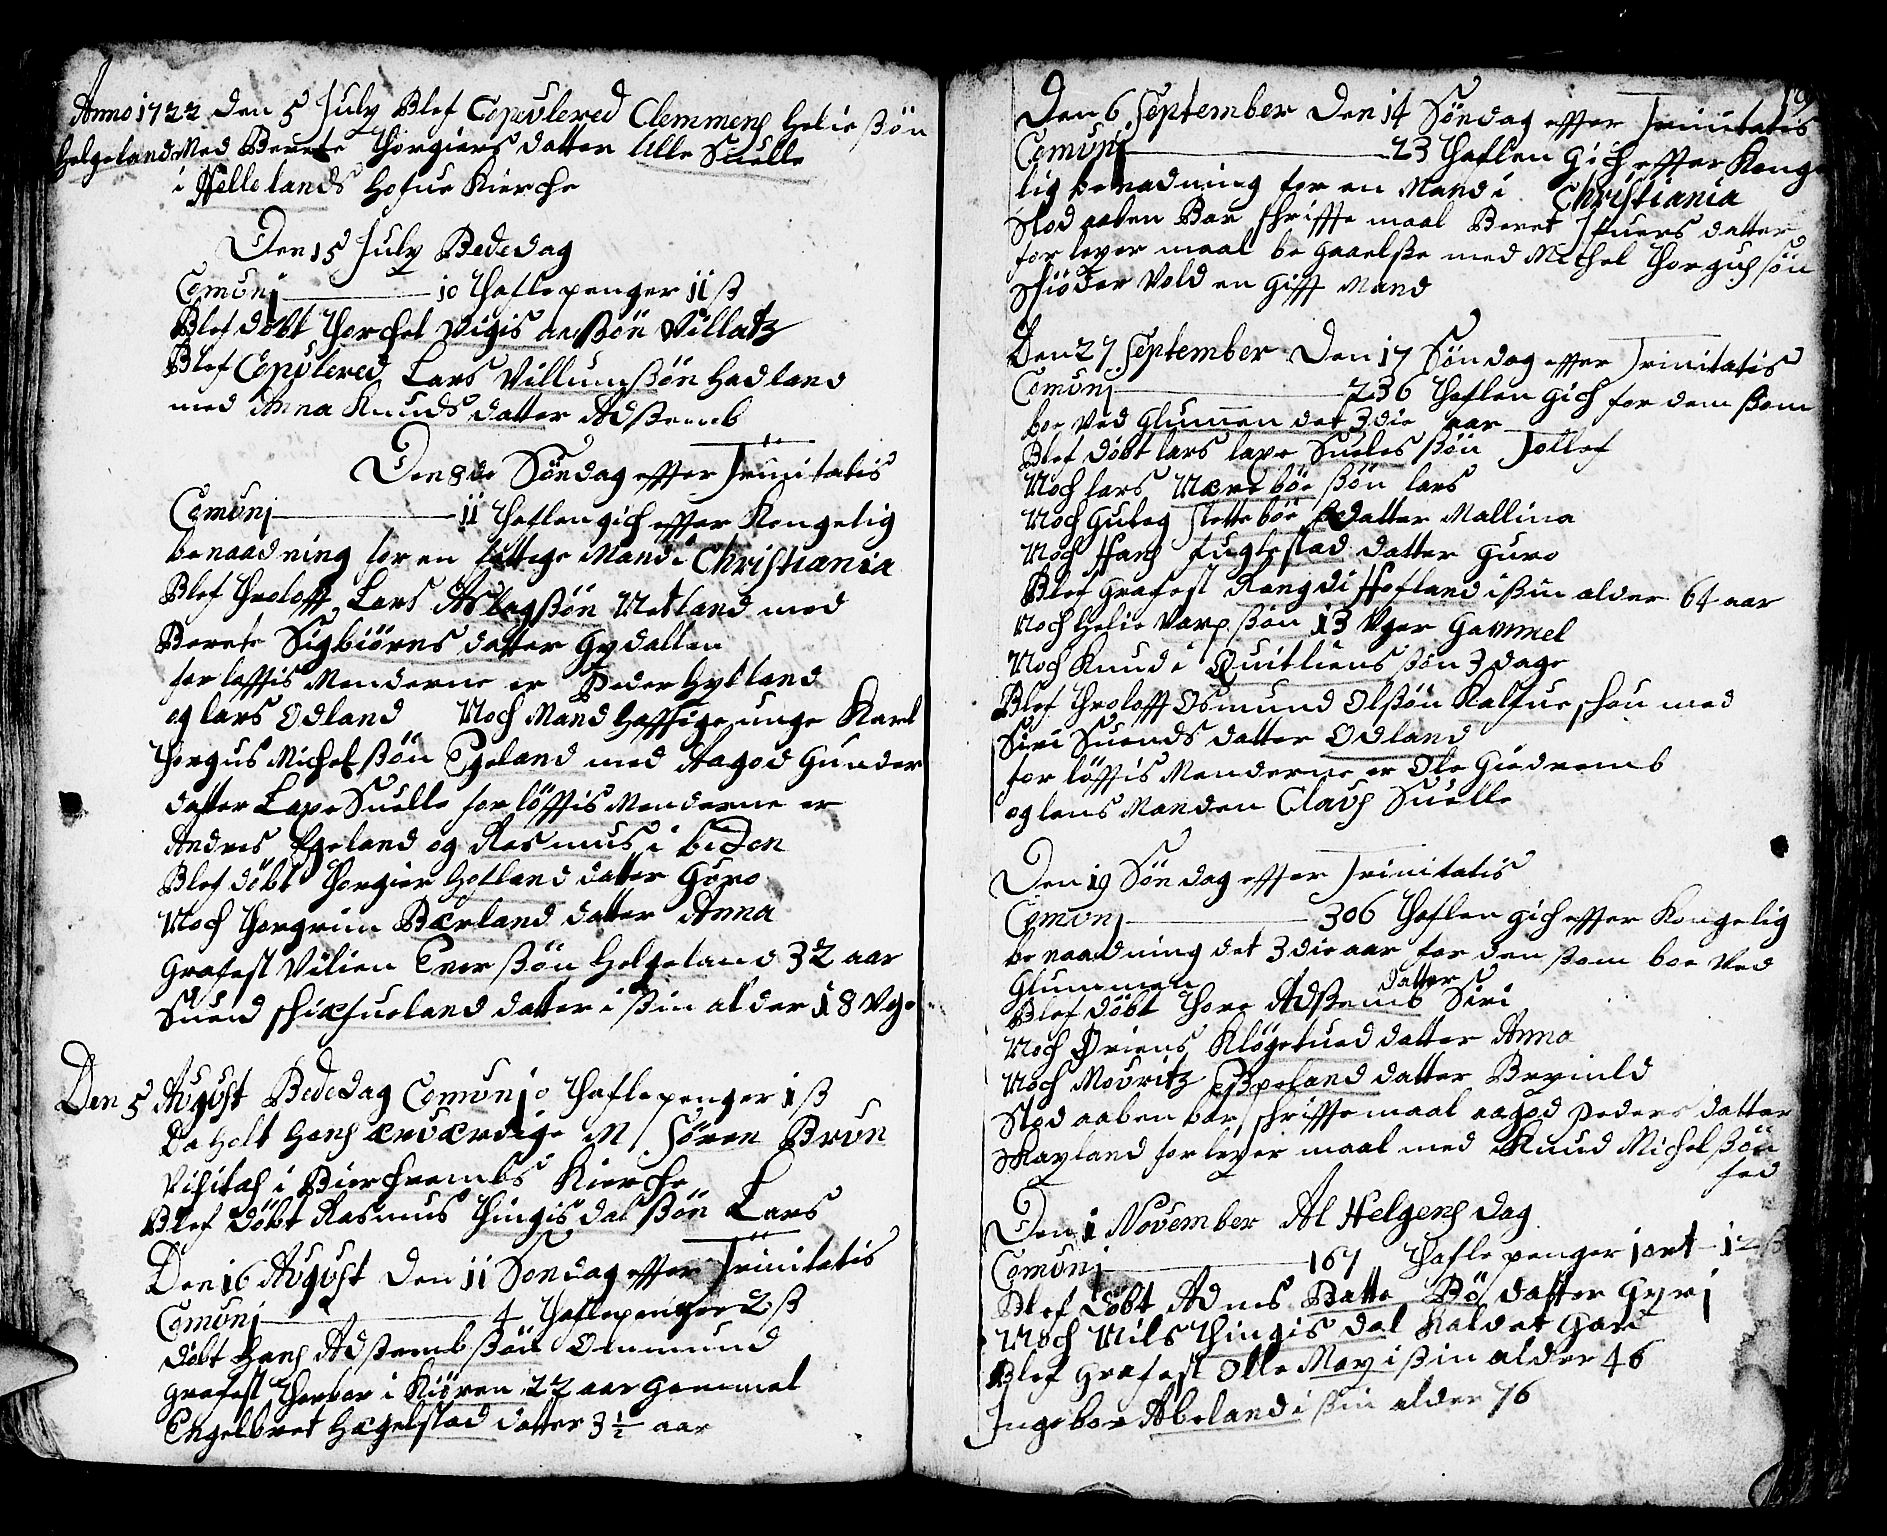 Anno 1722 den 5 July Blef Copulered Clemmens Helie ßön
Helgeland Med Berete Thorgiers datter lille Suelle
i Hellelands Hofue Kierche
Den 15 July Bededag
Comunj 10 Thaflepenger 11 ß
Blef döbt Thorchel Vigis anßön Villatz
Blef Copulered Lars Villumßön Hadland
med Anna Knuds datter Adßemb
Den 8de Söndag effter Trinitatis
Comunj 11 Thaflen gich effter Kongelig
benaadning for en fattige Mand i Christiania
Blef Throloff Lars Aslagßön Netland med
Berete Sigbiörns datter Gydallen
forloffis Menderne er Peder Hylland
og lars Odland Noch Mandhafftige unge Karl
Thorgus Michelßön Egeland med Aagod Gunder
datter Laxe Suelle forlöffis Menderne er
Andres Egeland og Rasmus i Leiden
Blef döbt Thorgier Hofland datter Göro
Noch Thorgrim Bærland datter Anna
Grafest Vilien Enerßön Helgeland 32 aar
Suend schiæfueland datter i ßin alder 18 Vge
Den 5 August Bededag Comunj 0 Thaflepenger 1 ß
Da holt Hans ærværdige M Sören Brun
Visitas i Bierchrembs Kierche
Blef Döbt Rasmus Thingisdal ßön Lars
Den 16 August Den 11 Söndag effter Trinitatis
Comunj 4 Thaflepenger 2 ß
döbt Hans Adßemb ßön Ommund
Grafest Thorbor i Kiören 22 aar Gammel
Engelbret Hægelstad datter 3 1/2 aar
Den 6 September Den 14 Söndag effter Trinitatis
Comunj 23 Thaflen gich effter Konge
lig benadning for en Mand i Christiania
Stod aaben Bar schriffte maal Beret Ifuers datter
for leyer maal be gaaelße med Michel Thorgus sön
Schiöder Vold en Gifft Mand
Den 27 September Den 17 Söndag effter Trinitatis
Comunj 236 Thaflen gich for dem ßom
boe Ved Glummen det 3die aar
Blef döbt lars laxe Sueles ßön Tollef
Noch lars Næreböe ßön lars
Noch Guteg Sletteböe datter Mallina
Noch Hans Fuglestad datter Guro
Blef Grafest Rangdi Hofland i ßin alder 64 aar
Noch Helie Varp ßön 13 Vger Gammel
Noch Knud i Quitliens ßön 3 dage
Blef Throloff Osmund Olßön Kalfue schou med
Siri Suends datter Odland
for löffis Menderne er Ole Giedremb
og lens Manden Claus Suelle
Den 19 Söndag effter Trinitatis
Comunj 306 Thaflen gich effter Kongelig
benaadning det 3die aar for den ßom boe Ved
Glummen
Blef döbt Thore Adßemb datter Siri
Noch Driens Klögetued datter Anna
Noch Mouritz Eßpeland datter Brynild
Stod aaben bar schrifftemaal aagod Peders datter
Mayland for leyer maal med Knud Michelßön
fed
Den 1 November Al Helgens Dag
Comunj 167 Thafle penger 1 ort 12 ß
Blef Döbt Adnes Batte Bö datter Gyrj
Noch Nils Thingis dal kaldet Gari
Blef Grafest Olle May i ßin alder 46
Ingebor Abeland i ßin alder 76